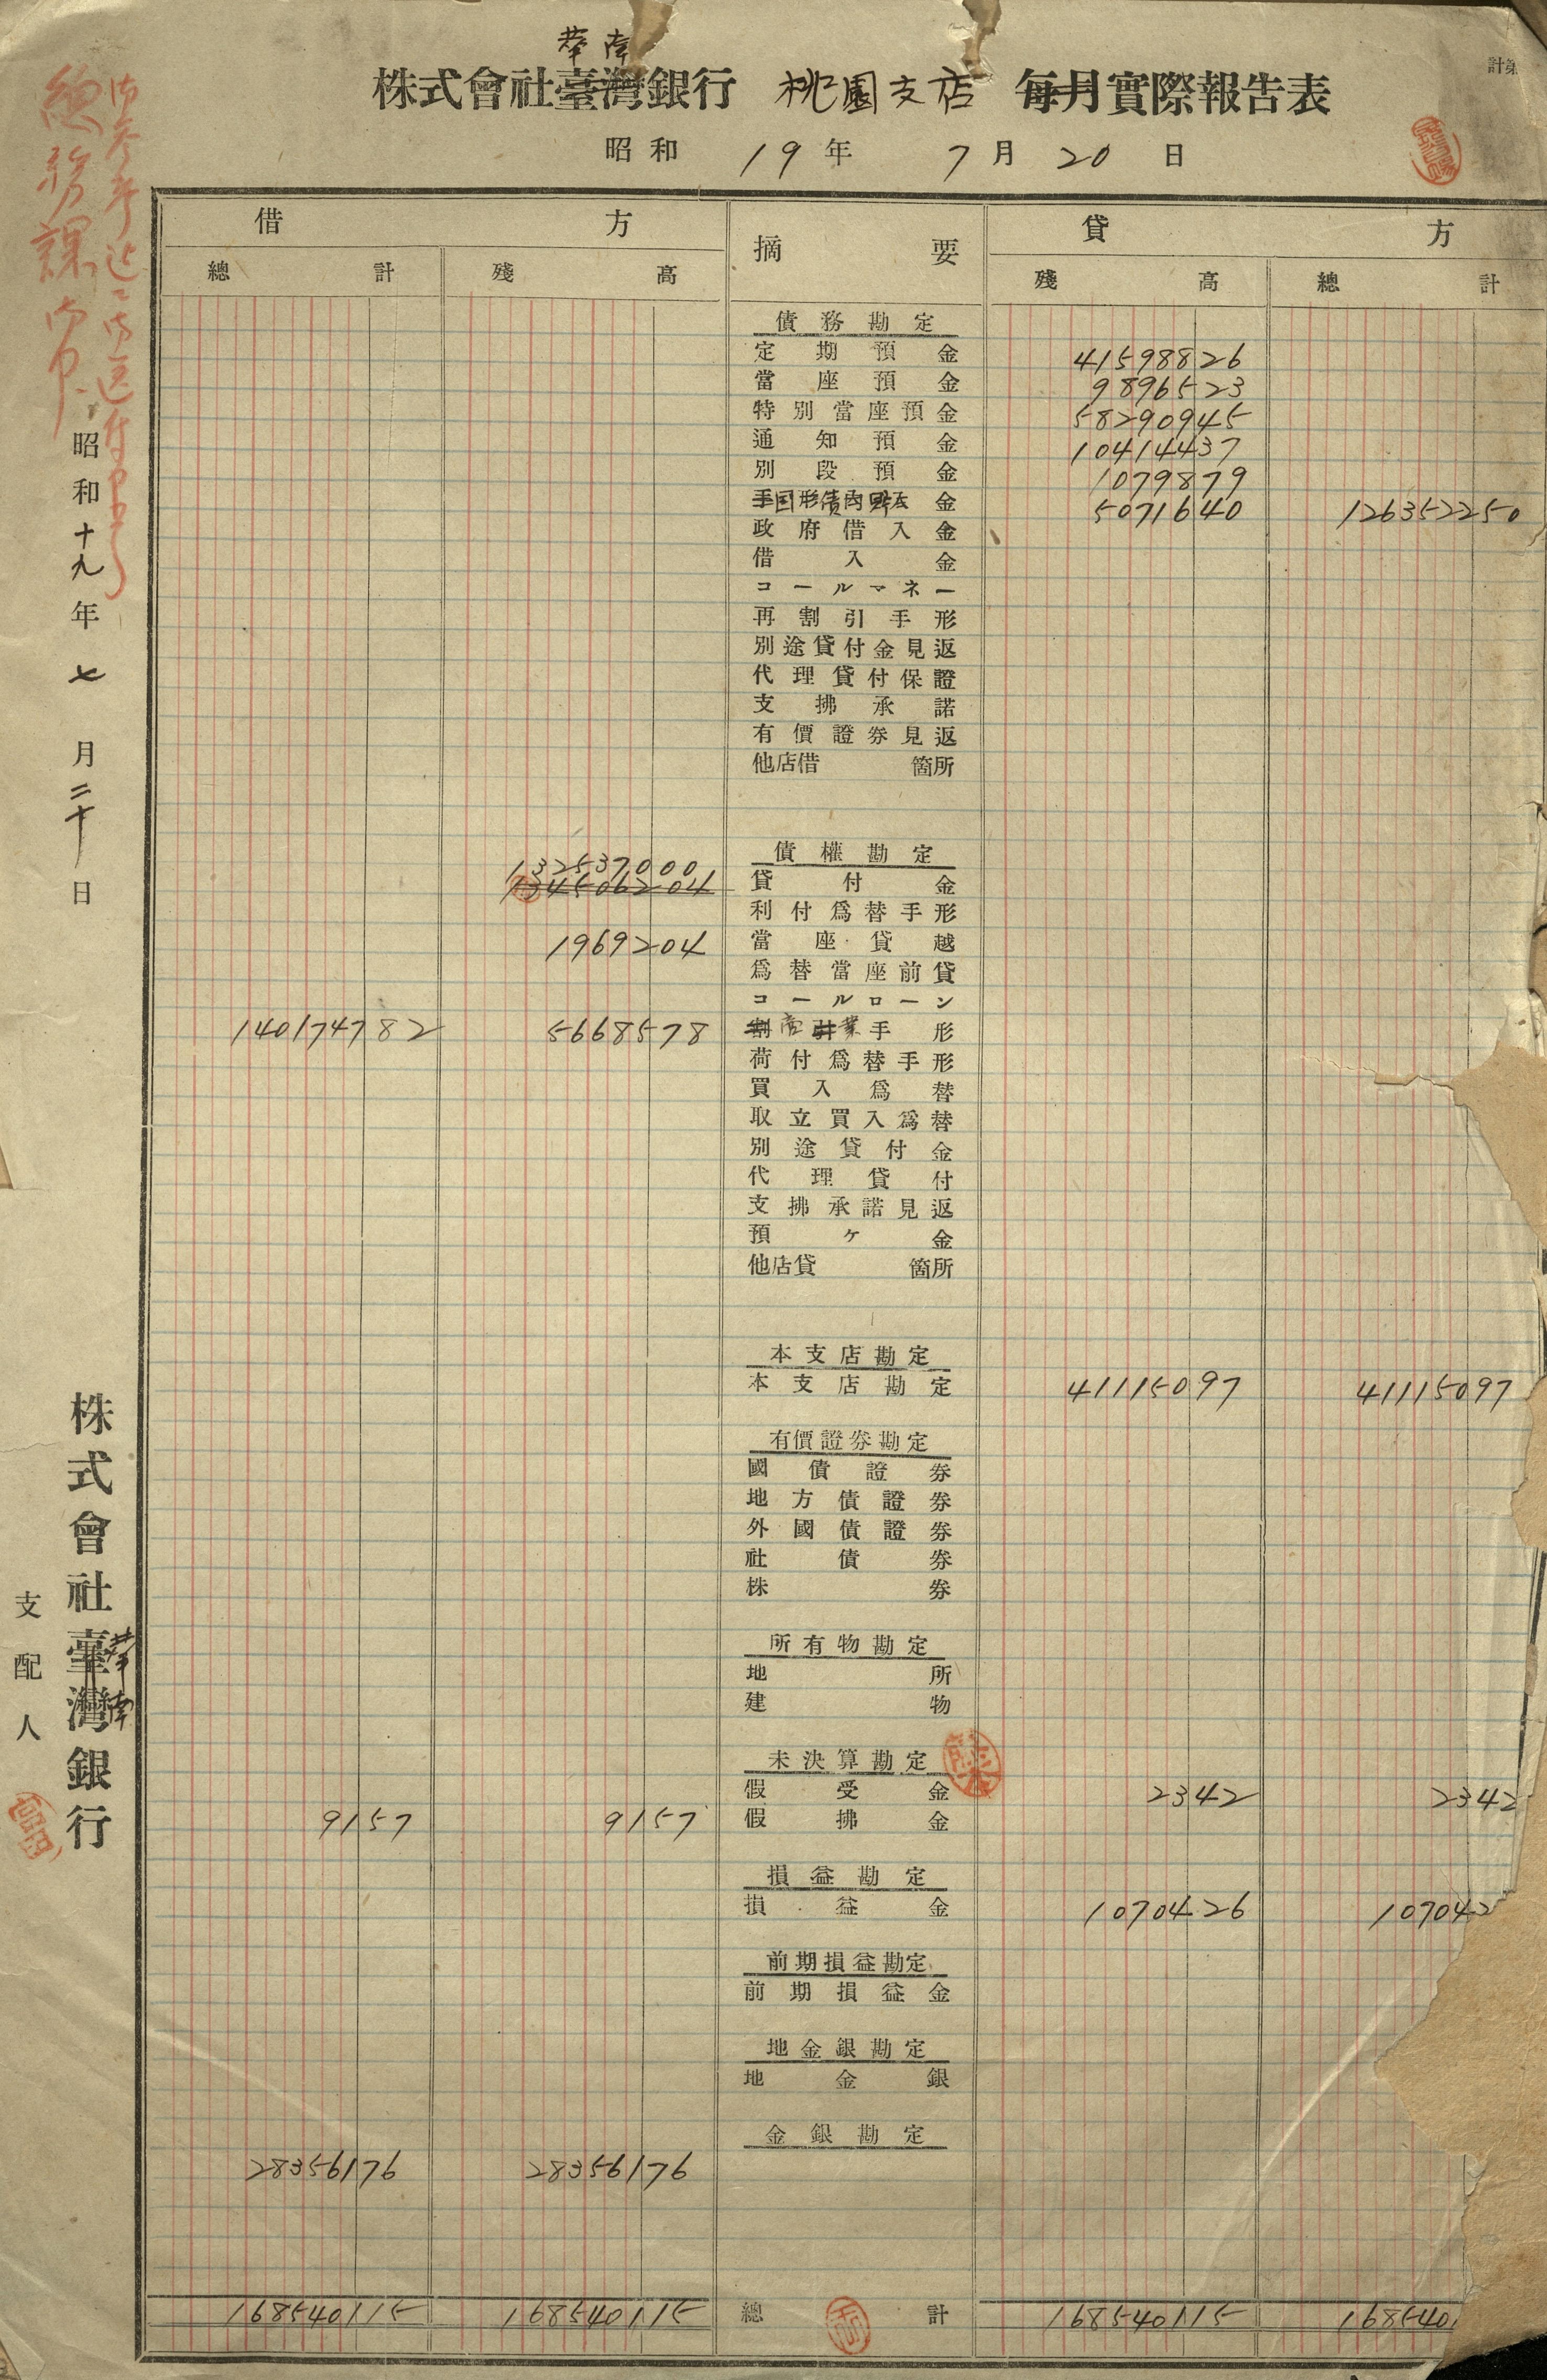 華南
株式會社臺灣銀行 桃園支店 每月實際報告表
昭和 19 年 7 月 20 日
借方 摘要 貸方
總計 殘高 殘高 總計
債務勘定
定期預金 41598826
當座預金 9896523
特別當座預金 58290945
通知預金 10414437
別段預金 1079879
金 5071640 126352250
政府借入金
借入金
コールマネー
再割引手形
別途貸付金見返
代理貸付保證
支拂承諾
有價證券見返
他店借 箇所
債權勘定
132537000
134506204 貸付金
利付爲替手形
1969204 當座貸越
爲替當座前貸
コールローン
140174782 5668578 割商引業手形
荷付爲替手形
買入爲替
取立買入爲替
別途貸付金
代理貸付
支拂承諾見返
預ケ金
他店貸 箇所
本支店勘定
本支店勘定 41115097 41115097
有價證券勘定
國債證券
地方債證券
外國債證券
社債券
株券
所有物勘定
地所
建物
未決算勘定
假受金 2342 2342
9157 9157 假拂金
損益勘定
損益金 1070426 107042
前期損益勘定
前期損益金
地金銀勘定
地金銀
金銀勘定
28356176 28356176
168540115 168540115 總計 168540115 168540
總務課
昭和十九年七月二十日
株式會社臺灣銀行
華南
支配人